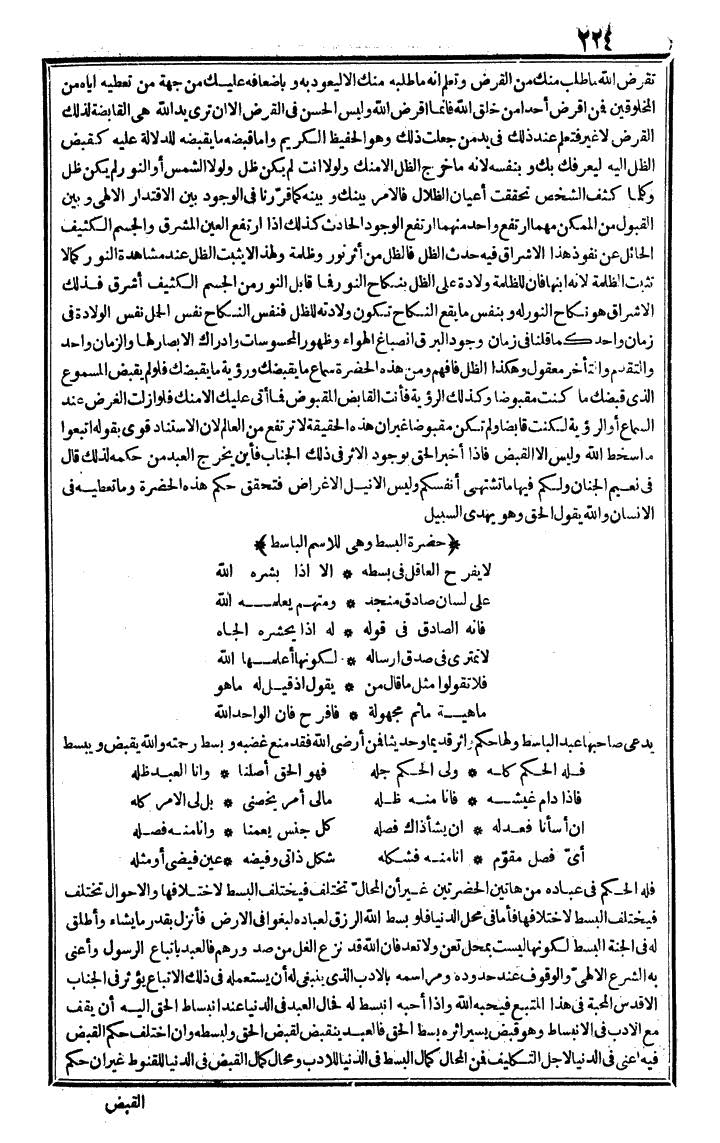 ٢٢٤
تقرض الله ما طلب منك من القرض وتعلم انه ما طلبه منك الا ليعود به و باضعافه عليك من جهة من تعطيه اياه من
المخلوقين فمن اقرض أحدا من خلق الله فانما أقرض الله وليس الحسن فى القرض الا ان ترى يد الله هى القابضة لذلك
القرض لا غير فتعلم عند ذلك فى يد من جعلت ذلك وهو الحفيظ الكريم واما قبضه ما يقبضه للدلالة عليه كقبض
الظل اليه ليعرفك بك و بنفسه لانه ما خرج الظل الا منك ولولا أنت لم يكن ظل ولولا الشمس أو النور لم يكن ظل
وكلما كثف الشخص تحققت أعيان الظلال فالامر بينك و بينه كما قرّرنا فى الوجود بين الاقتدار الالهى و بين
القبول من الممكن مهما ارتفع واحد منهما ارتفع الوجود الحادث كذلك اذا ارتفع العين المشرق والجسم الكثيف
الحائل عن نفوذ هذا الاشراق فيه حدث الظل فالظل من أثر نور وظلمة ولهذا لا يثبت الظل عند مشاهدة النور كما لا
تثبت الظلمة لانه ابنها فان للظلمة ولادة على الظل بنكاح النور فما قابل النور من الجسم الكثيف أشرق فذلك
الاشراق هو نكاح النور له و بنفس ما يقع النكاح تكون ولادته للظل فنفس النكاح نفس الحمل نفس الولادة فى
زمان واحد كما قلنا فى زمان وجود البرق انصباغ الهواء وظهور المحسوسات وادراك الابصار لها والزمان واحد
والتقدم والتأخر معقول وهكذا الظل فافهم ومن هذه الحضرة سماع ما يقبضك ورؤية ما يقبضك فلو لم يقبض المسموع
الذى قبضك ما كنت مقبوضا وكذلك الرؤية فأنت القابض المقبوض فما أتى عليك الا منك فلو ازلت الغرض عند
السماع أو الرؤية لكنت قابضا ولم تكن مقبوضا غير ان هذه الحقيقة لا ترتفع من العالم لان الاستناد قوى بقوله اتبعوا
ما اسخط الله وليس الا القبض فاذا أخبر الحق بوجود الاثر فى ذلك الجناب فأين يخرج العبد من حكمه لذلك قال
فى نعيم الجنان ولكم فيها ما تشتهى أنفسكم وليس الا نيل الاغراض فتحقق حكم هذه الحضرة وما تعطيه فى
الانسان والله يقول الحق وهو يهدى السبيل
﴿حضرة البسط وهى للاسم الباسط﴾
لا يفرح العاقل فى بسطه * الا اذا بشره الله
على لسان صادق منجد * ومتهم يعلمه الله
فانه الصادق فى قوله * له اذا يحشره الجاه
لا تمترى فى صدق ارساله * لكونها أعلمها الله
فلا تقولوا مثل ما قال من * يقول اذ قيل له ما هو
ماهية ما ثم مجهولة * فافرح فان الواحد الله
يدعى صاحبها عبد الباسط ولها حكم وأثر قديما وحديثا فمن أرضى الله فقد منع غضبه و بسط رحمته والله يقبض و يبسط
فله الحكم كله * ولى الحكم جله فهو الحق أصلنا * وانا العبد ظله
فاذا دام غيثه * فانا منه ظله مالى أمر يخصنى * بل لى الامر كله
ان أسأنا فعدله * ان يشأ ذاك فصله كل جنس يعمنا * وانا منه فصله
أىّ فصل مقوّم * انا منه فشكله شكل ذاتى وفيضه * عين فيضى أو مثله
فله الحكم فى عباده من هاتين الحضرتين غير أن المحالّ تختلف فيختلف البسط لاختلافها والاحوال تختلف
فيختلف البسط لاختلافها فأما فى محل الدنيا فلو بسط الله الرزق لعباده لبغوا فى الارض فأنزل بقدر ما يشاء وأطلق
له فى الجنة البسط لكونها ليست بمحل تعن ولا تعد فان الله قد نزع الغل من صدورهم فالعبد باتباع الرسول وأعنى
به الشرع الالهىّ والوقوف عند حدوده ومراسمه بالادب الذى ينبغى له أن يستعمله فى ذلك الاتباع يؤثر فى الجناب
الاقدس المحبة فى هذا المتبع فيحبه الله واذا أحبه انبسط له فحال العبد فى الدنيا عند انبساط الحق اليه أن يقف
مع الادب فى الانبساط وهو قبض يسير اثره بسط الحق فالعبد ينقبض لقبض الحق ولبسطه وان اختلف حكم القبض
فيه اعنى فى الدنيا لاجل التكليف فمن المحال كمال البسط فى الدنيا للادب ومحال كمال القبض فى الدنيا للقنوط غير ان حكم
القبض